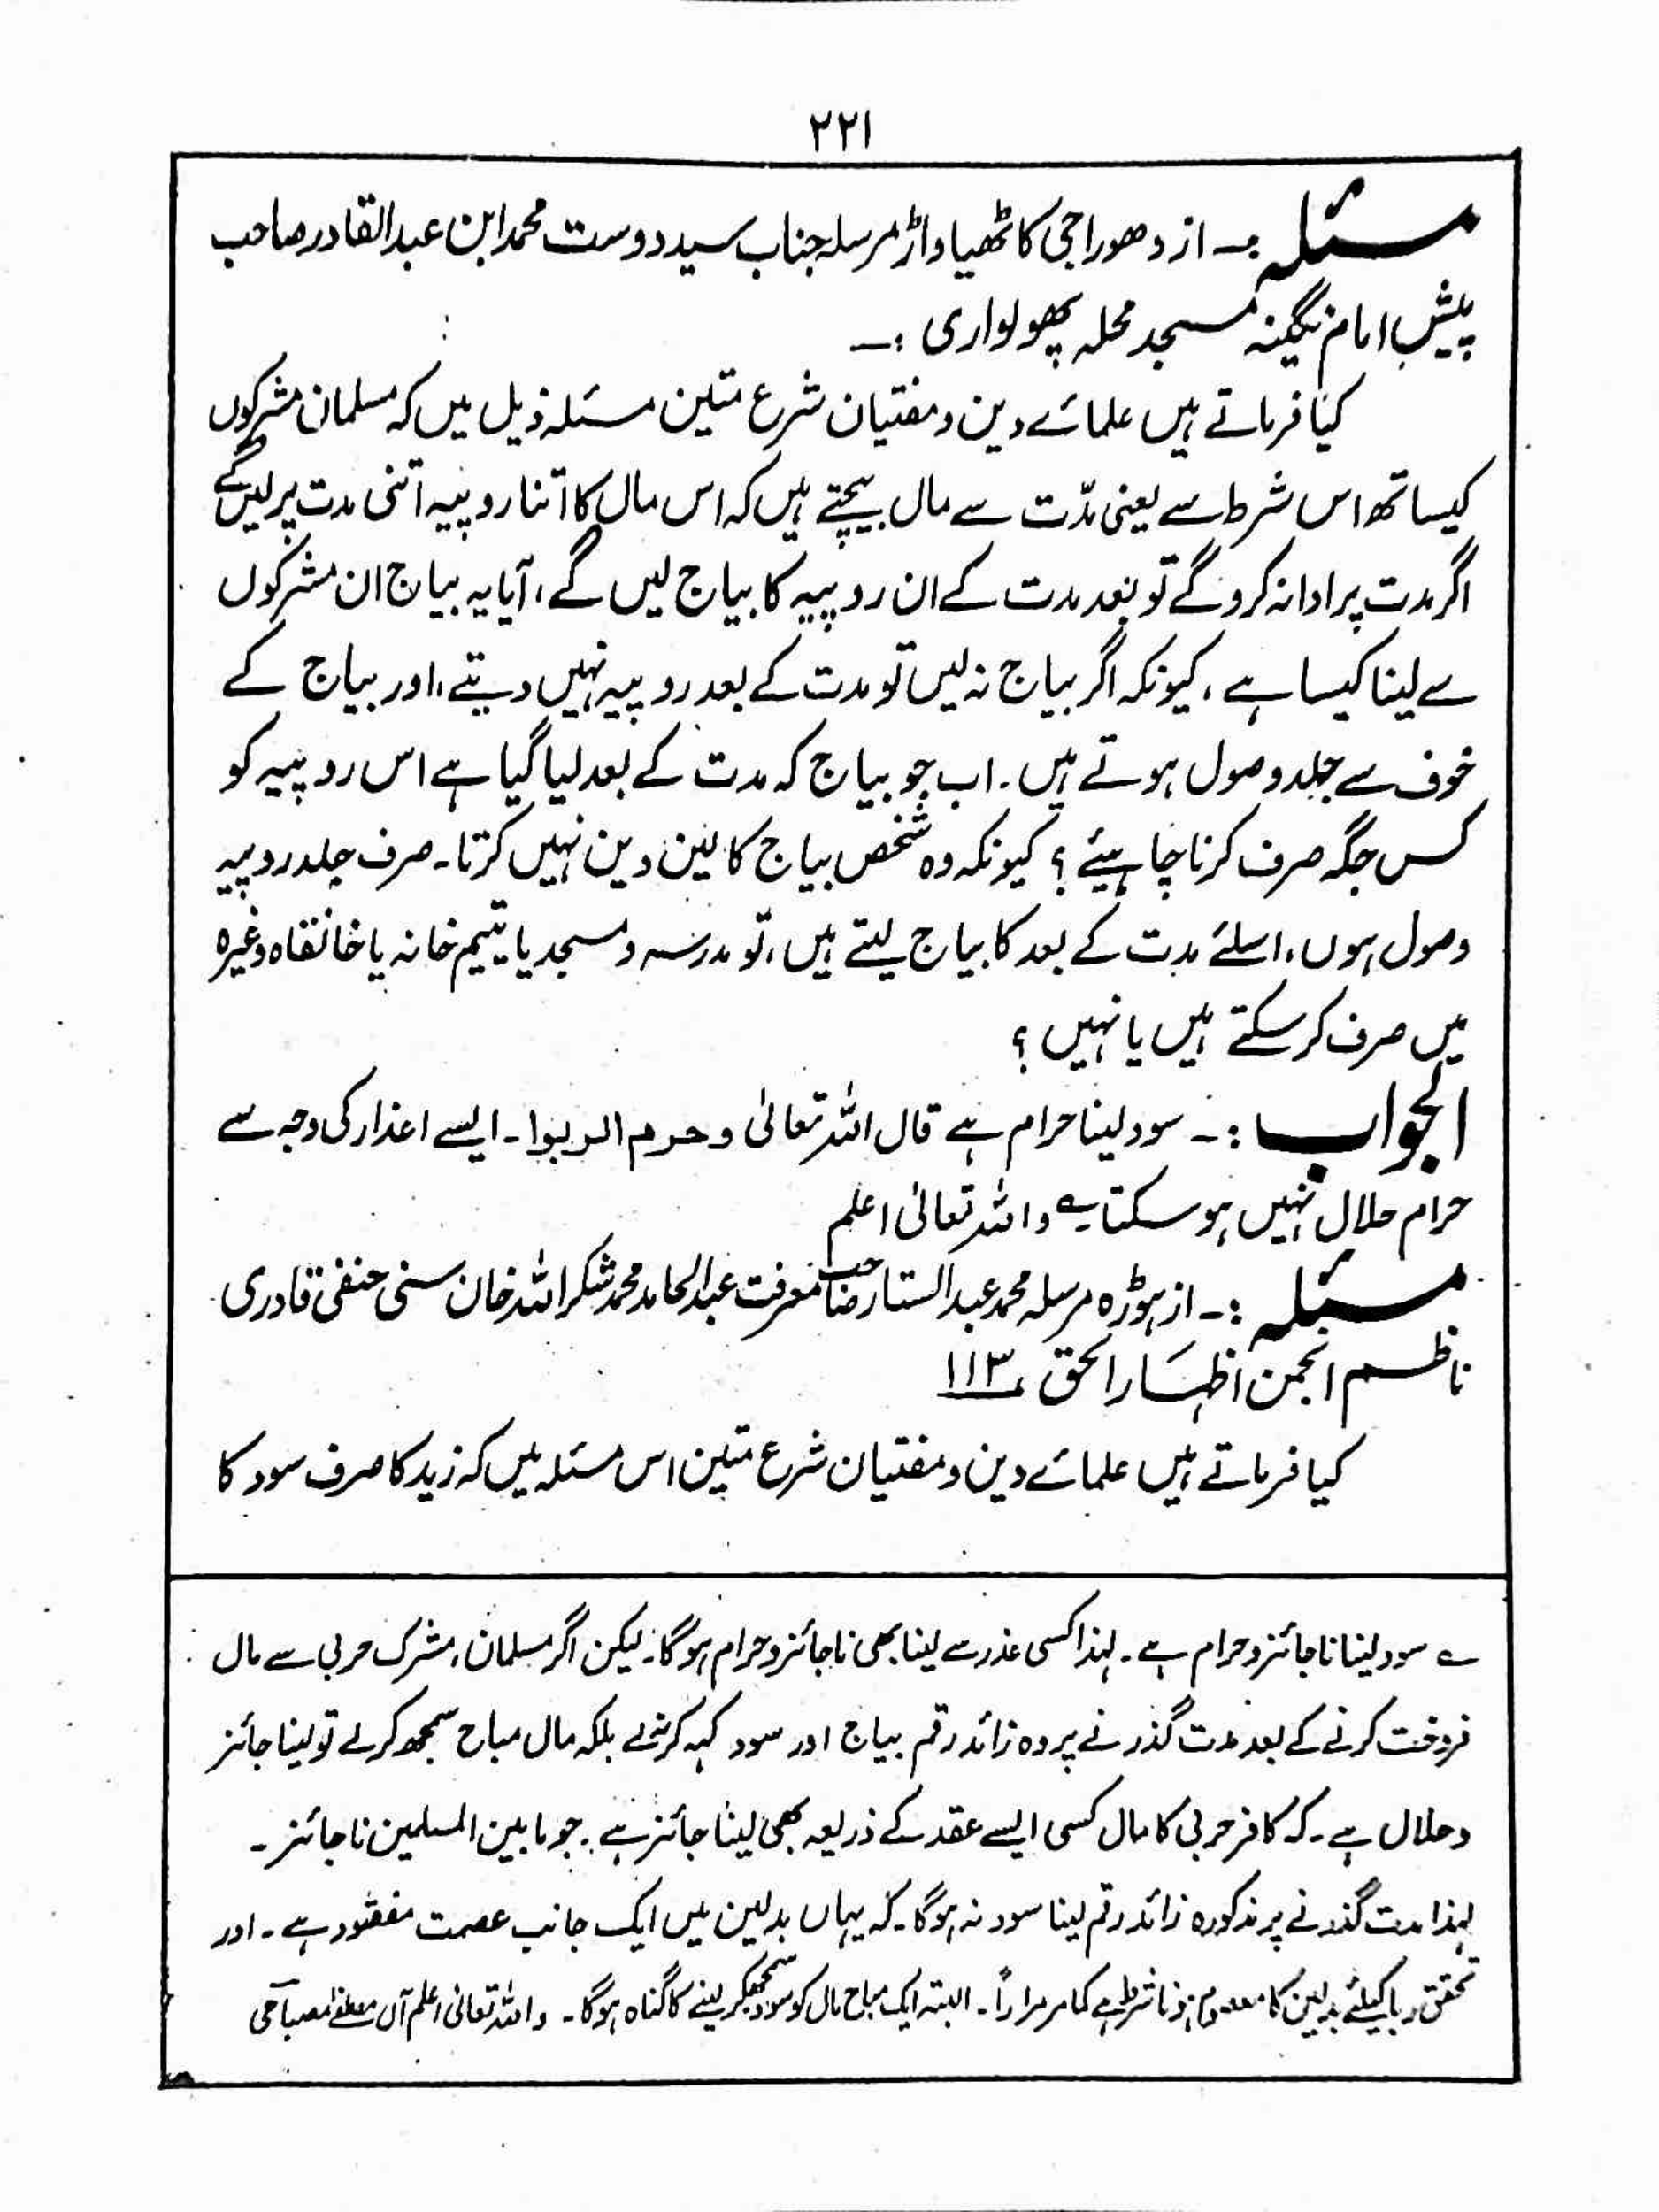 ۲۲۱
مسئلہ :۔ از دھوراجی کاٹھیاواڑ مرسلہ جناب سید دوست محمد ابن عبدالقادر صاحب
پیش امام نگینہ مسجد محلہ پھولواری :۔
کیا فرماتے ہیں علمائے دین و مفتیان شرع متین مسئلہ ذیل میں کہ مسلمان مشرکوں
کیساتھ اس شرط سے یعنی مدّت سے مال بیچتے ہیں کہ اس مال کا اتنا روپیہ اتنی مدت پر لیں گے
اگر مدت پر ادا نہ کرو گے تو بعد مدت کے ان روپیہ کا بیاج لیں گے، آیا یہ بیاج ان مشرکوں
سے لینا کیسا ہے، کیونکہ اگر بیاج نہ لیں تو مدت کے بعد روپیہ نہیں دیتے، اور بیاج کے
خوف سے جلد وصول ہوتے ہیں۔ اب جو بیاج کہ مدت کے بعد لیا گیا ہے اس روپیہ کو
کس جگہ صرف کرنا چاہیئے ؟ کیونکہ وہ شخص بیاج کا لین دین نہیں کرتا۔ صرف جلد روپیہ
وصول ہوں، اسلئے مدت کے بعد کا بیاج لیتے ہیں، تو مدرسہ و مسجد یا یتیم خانہ یا خانقاہ وغیرہ
میں صرف کر سکتے ہیں یا نہیں ؟
الجواب :۔ سود لینا حرام ہے قال اللہ تعالیٰ وحرم الربوا۔ ایسے اعذار کی وجہ سے
حرام حلال نہیں ہو سکتا ؎ واللہ تعالیٰ اعلم
مسئلہ :۔ از ہوڑہ مرسلہ محمد عبدالستار صاحب معرفت عبدالحامد محمد شکر اللہ خان سنی حنفی قادری
ناظم انجمن اظہار الحق ۱۱۳؁
کیا فرماتے ہیں علمائے دین و مفتیان شرع متین اس مسئلہ میں کہ زید کا صرف سود کا
؎ سود لینا ناجائز و حرام ہے۔ لہذا کسی عذر سے لینا بھی ناجائز و حرام ہوگا۔ لیکن اگر مسلمان، مشرک حربی سے مال
فروخت کرنے کے بعد مدت گذرنے پر وہ زائد رقم بیاج اور سود کہہ کر نہ لے بلکہ مال مباح سمجھ کر لے تو لینا جائز
و حلال ہے۔ کہ کافر حربی کا مال کسی ایسے عقد کے ذریعہ بھی لینا جائز ہے۔ جو مابین المسلمین ناجائز۔
لہذا مدت گذرنے پر مذکورہ زائد رقم لینا سود نہ ہوگا۔ کہ یہاں بدلین میں ایک جانب عصمت مفقود ہے۔ اور
تحقق ربا کیلئے بدلین کا معصوم ہونا شرط ہے کما مر مراراً۔ البتہ ایک مباح مال کو سود سمجھکر لینے کا گناہ ہوگا۔ واللہ تعالیٰ اعلم آل مصطفےٰ مصباحی